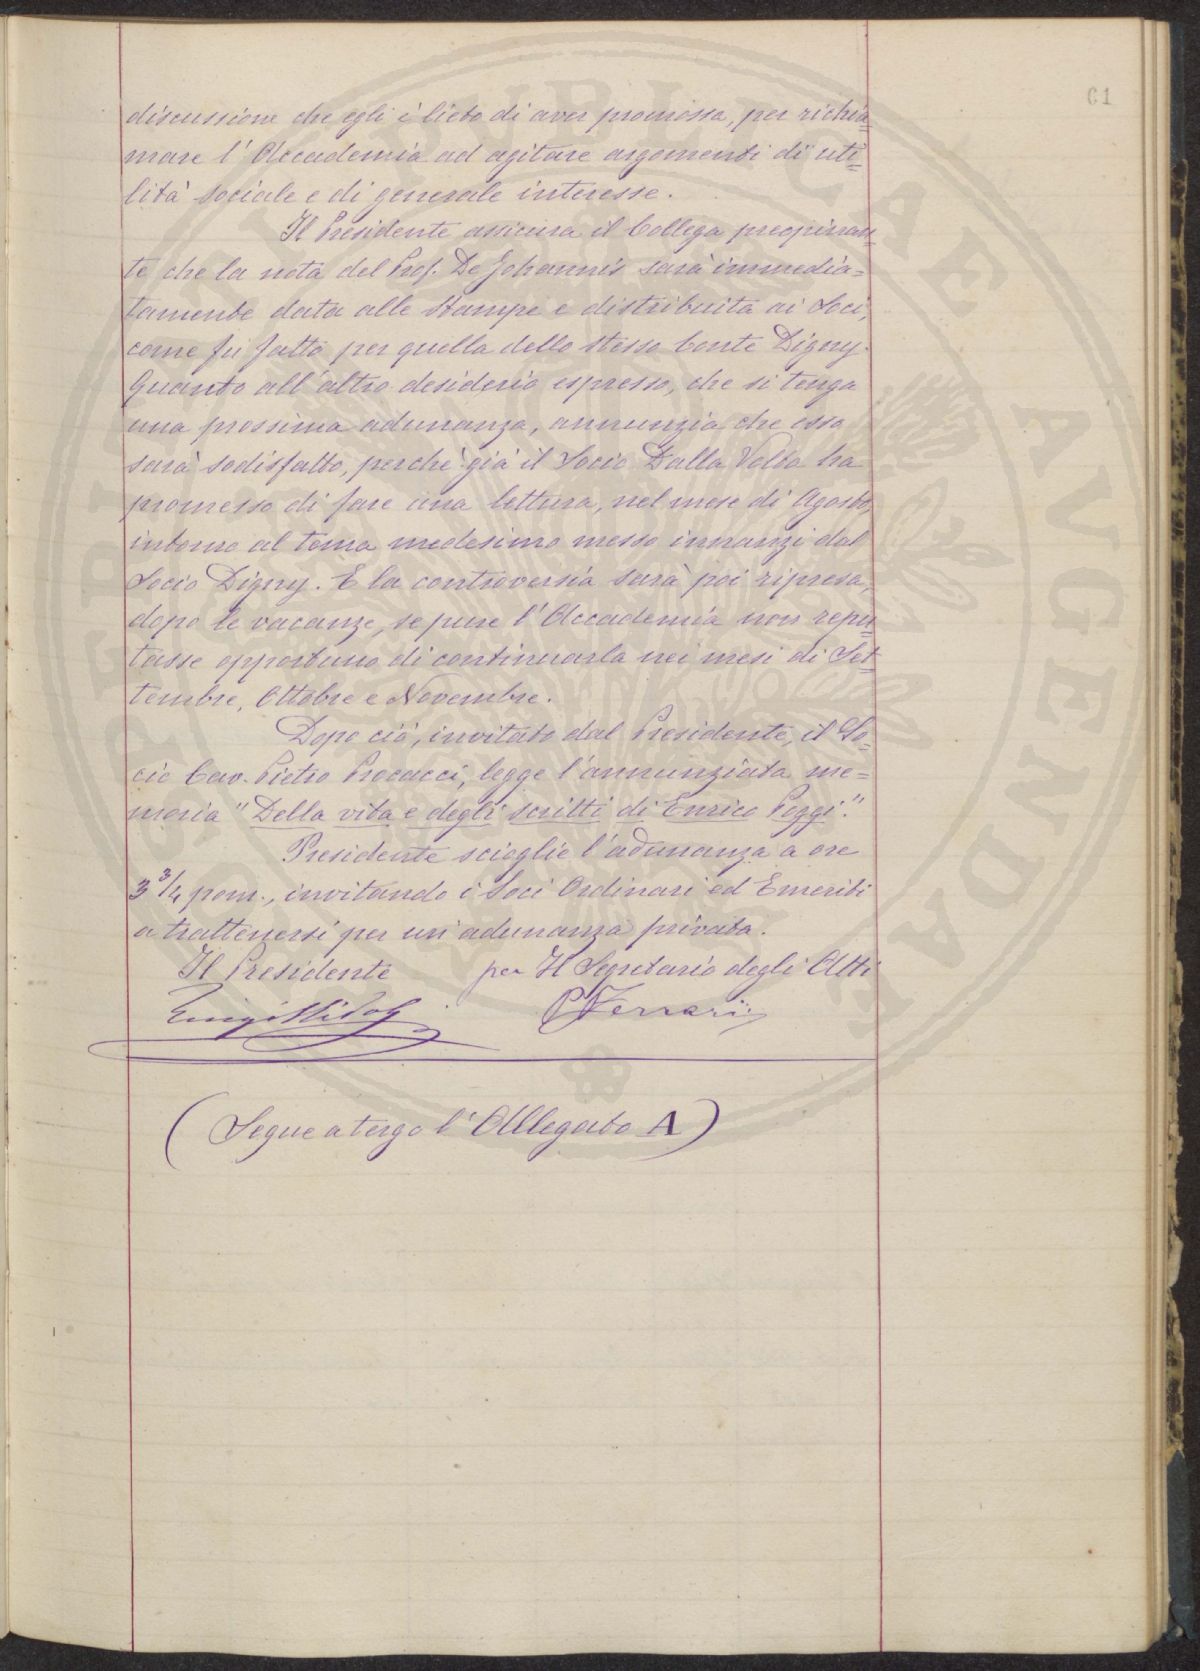 61
discussione che egli è lieto di aver promossa, per richia=
mare l'Accademia ad agitare argomenti di uti=
lità sociale e di generale interesse.
Il Presidente assicura il Collega preopinan=
te che la nota del Prof. De Johannis sarà immedia=
tamente data alle stampe e distribuita ai Soci,
come fu fatto per quella dello stesso Conte Digny.
Quanto all'altro desiderio espresso, che si tenga
una prossima adunanza, annunzia che esso
sarà sodisfatto, perchè già il Socio Dalla Volta ha
promesso di fare una lettura, nel mese di Agosto,
intorno al tema medesimo messo innanzi dal
Socio Digny. E la controversia sarà poi ripresa,
dopo le vacanze, se pure l'Accademia non repu=
tasse opportuno di continuarla nei mesi di Set=
tembre, Ottobre e Novembre.
Dopo ciò, invitato dal Presidente, il So=
cio Cav. Pietro Procacci, legge l'annunziata me=
moria "Della vita e degli scritti di Enrico Poggi".
Presidente scioglie l'adunanza a ore
3 3/4 pom., invitando i Soci Ordinari ed Emeriti
a trattenersi per un'adunanza privata.
Il Presidente per Il Segretario degli Atti
Luigi Ridolfi P Ferrari
(Segue a tergo l'Allegato A)
PUBLICAE AUGENDAE